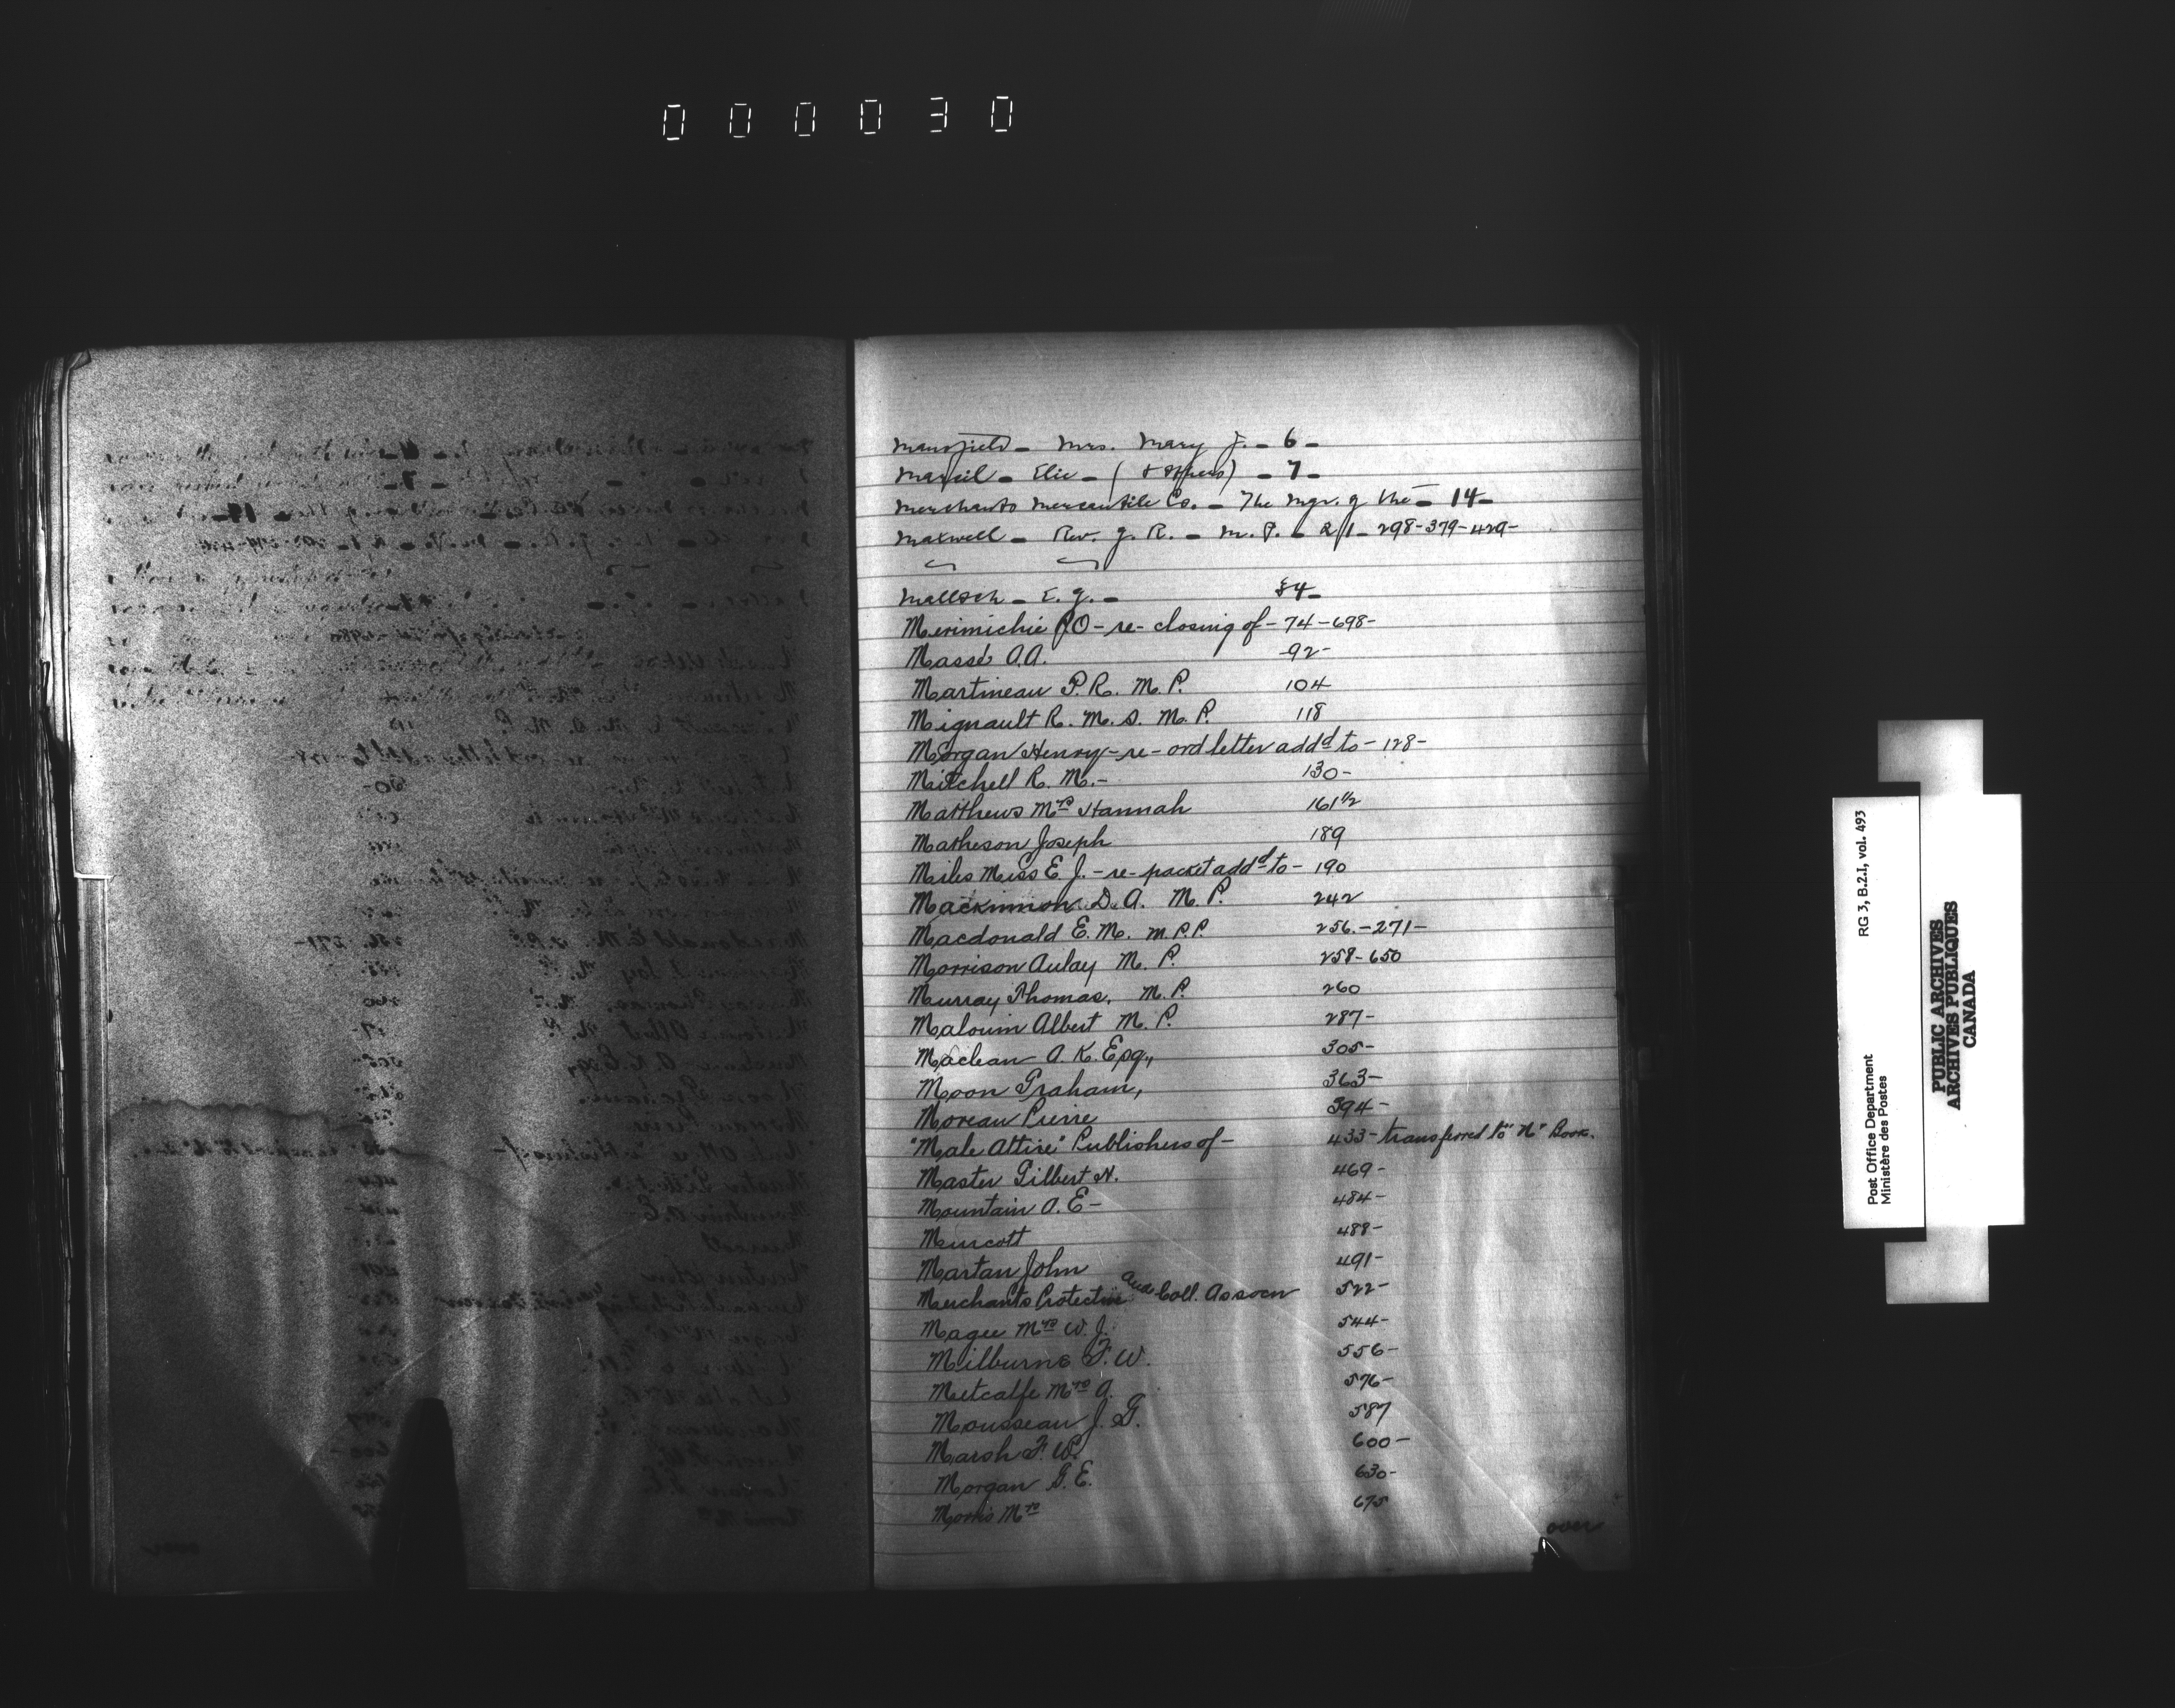 000030
Mansfield - Mrs. Mary J. - 6 -
Marcil - Elie - ( & others) - 7 -
Merchants Mercantile Co. - The Mgr. of the - 14 -
Maxwell - Rev. J. R. - M. P. - 21 - 298-379-429-
Mallsch - E. J. - 54 -
Merimichie P.O - re - closing of - 74 - 698 -
Massé A.A. 92 -
Martineau P. R. M. P. 104
Mignault R. M. S. M. P. 118
Morgan Henry - re - ord letter addd to - 128 -
Mitchell R. M. - 130 -
Matthews Mrs Hannah 161 1/2
Matheson Joseph 189
Miles Miss E. J. - re - packet addd to - 190
Mackinnon D. A. M. P. 242
Macdonald E. M. M.P.P. 256. - 271 -
Morrison Aulay M. P. 258 - 650
Murray Thomas, M. P. 260
Malouin Albert M. P. 287 -
Maclean A. K. Esq., 305 -
Moon Graham, 363 -
Moreau Pierre 394 -
"Male Attire" Publishers of - 433 - transferred to "N" Book.
Master Gilbert N. 469 -
Mountain A. E - 484 -
Meucott 488 -
Martan John 491 -
Merchants Protective and Coll. Assocn 522 -
Magee Mrs W. J. 544 -
Milburne F. W. 556 -
Metcalfe Mrs A. 576 -
Mousseau J. G. 587
Marsh F. W. 600 -
Morgan G. E. 630 -
Morris Mrs 675
over
RG 3, B.2.I, vol. 493
Post Office Department
Ministère des Postes
PUBLIC ARCHIVES
ARCHIVES PUBLIQUES
CANADA